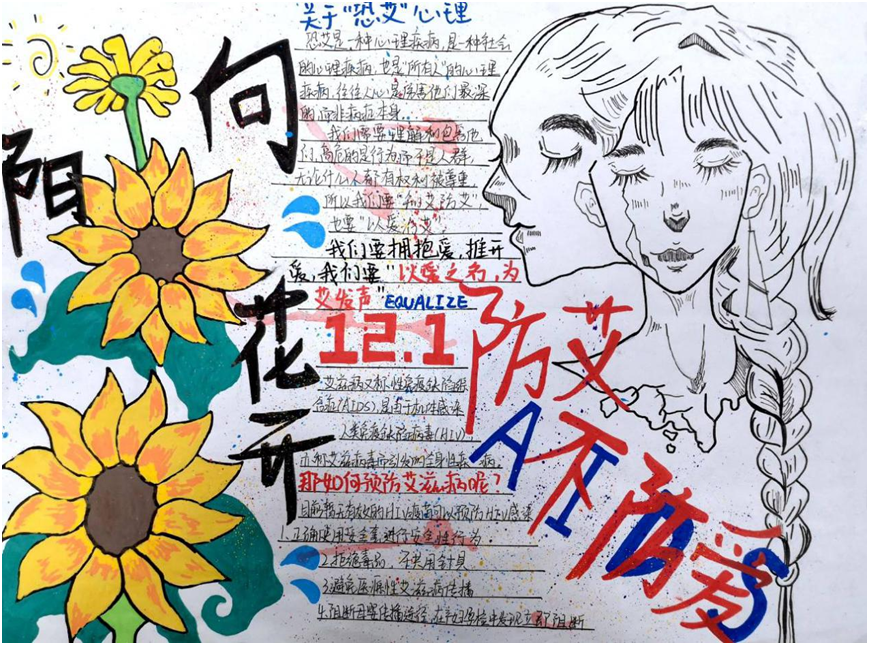 关于"恐艾"心理
恐艾是一种心理疾病,是一种社会
的心理疾病,也是"所有人"的心理
疾病,往往人心是伤害他们最深
的,而非病症本身。
我们需要理解和包容他
们,高危的是行为而不是人群,
无论什么人都有权利被尊重,
所以我们要"科学防艾",
也要"以爱待艾"
我们要拥抱爱,推开
爱,我们要"以爱之名,为
艾发声"EQUALIZE
12.1
艾滋病又称获得性免疫缺陷综
合症(AIDS),是由于机体感染
人类免疫缺陷病毒(HIV)
亦称艾滋病毒而引发的全身性疾病。
那如何预防艾滋病呢?
目前暂无有效的HIV疫苗可以预防HIV感染
1.正确使用安全套,进行安全性行为
2.拒绝毒品,不共用针具
3.避免医源性艾滋病传播
4.阻断母婴传播途径,在产妇孕检中发现立即阻断
向
阳
花
开
防艾不防爱
AIDS